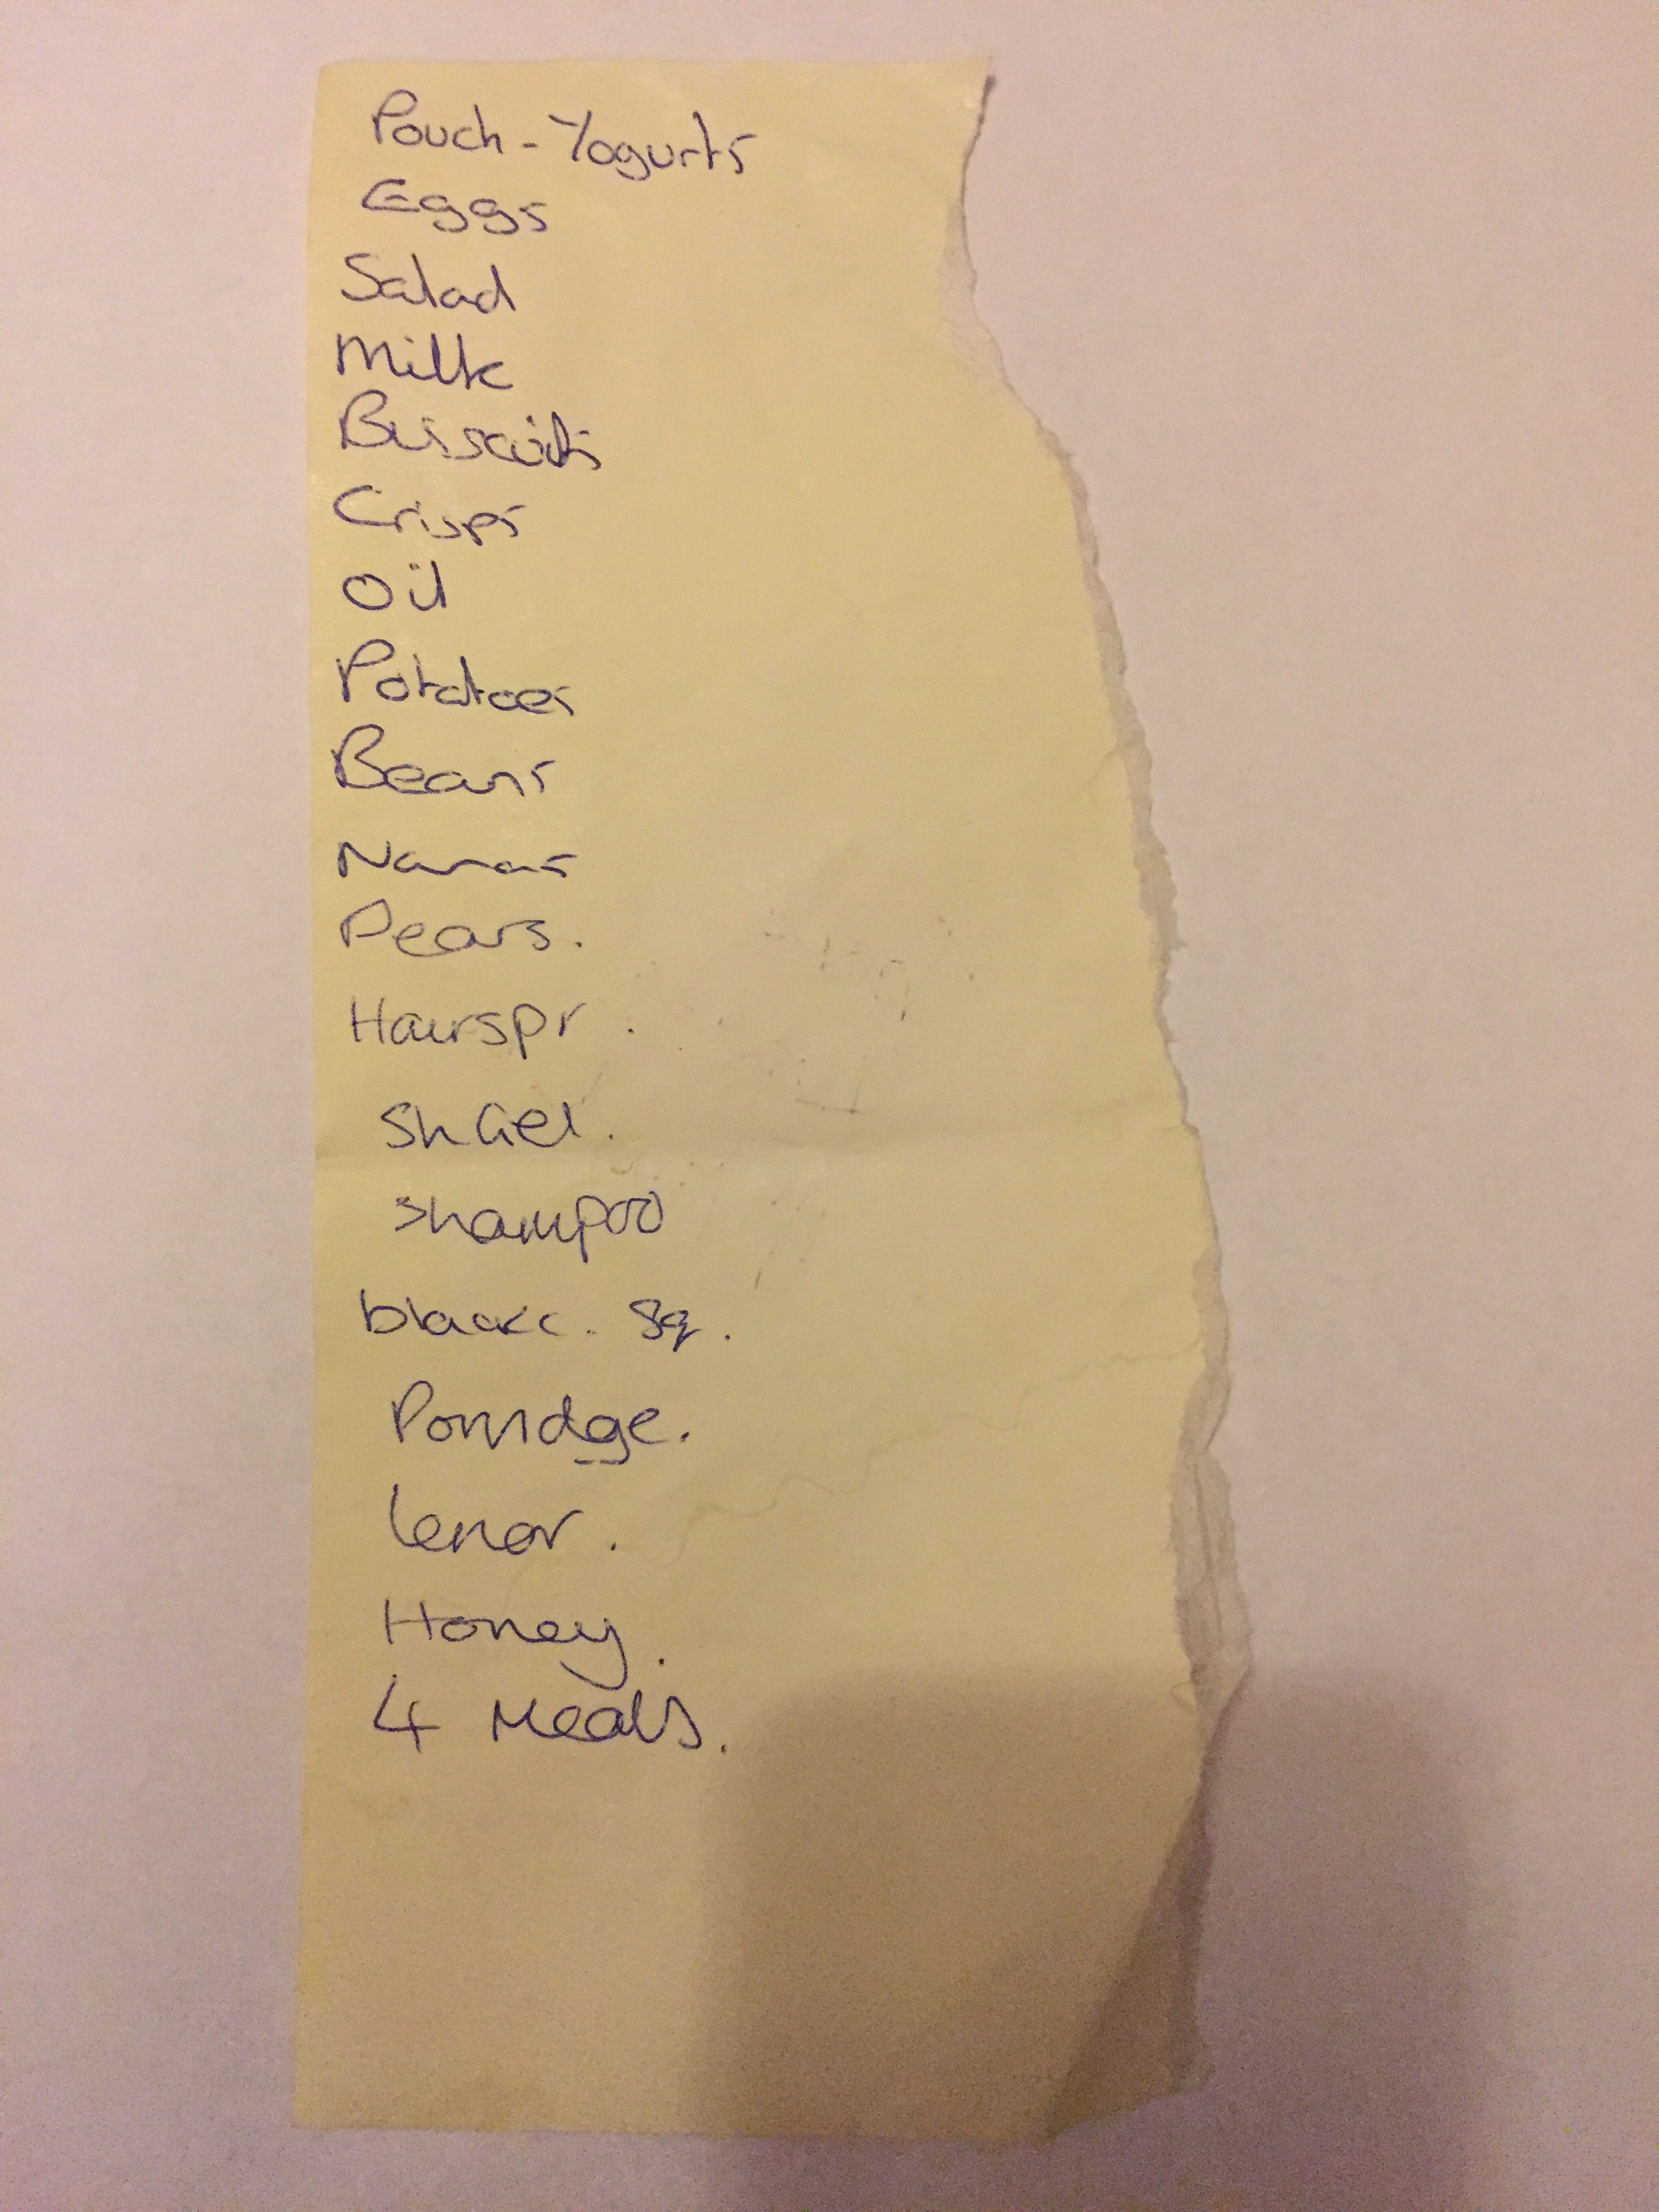 Pouch - Yogurts
Eggs
Salad
Milk
Bisscuits
Crisps
Oil
Potatoes
Beans
Nanas
Pears.
Hairspr.
Sh Gel.
Shampoo
blackc. Sq.
Porridge.
Lenor.
Honey.
4 Meals.